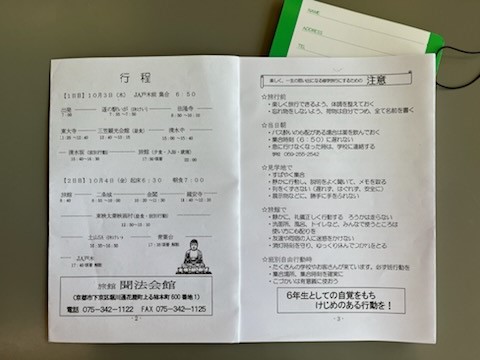 NAME
ADDRESS
TEL
行程
【1日目】10月3日(水) JA戸木館 集合 6:50
出発
道の駅いが(休けい)
法隆寺
東大寺
三笠観光会館(昼食)
清水寺
清水坂(班別行動)
旅館(夕食・入浴・就寝)
【2日目】10月4日(金) 起床6:30 朝食7:00
旅館
二条城
金閣
龍安寺
東映太秦映画村(昼食・班別行動)
土山SA(休けい)
JA戸木
旅館 聞法会館
(京都市下京区堀川通花屋町上る柿本町600番地1)
電話 075-342-1122 FAX 075-342-1125
-2-
楽しく、一生の思い出になる修学旅行にするための 注意
☆旅行前
・楽しく旅行できるよう、体調を整えておく
・忘れ物をしないよう、荷物は自分でつめ、全て名前を書く
☆当日朝
・バス酔いの心配がある場合は薬を飲んでおく
・集合時刻(6:50)に遅れない
・急に行けなくなった時は、学校に連絡する
学校 059-255-2542
☆見学地で
・すばやく集合
・静かに行動し、説明をよく聞いて、メモを取る
・列をくずさない(遅れず、はぐれず、安全に)
・展示物などに、勝手に手をふれない
☆旅館で
・静かに、礼儀正しく行動する ろうかは走らない
・洗面所、風呂、トイレなど、みんなで使うところは
使い方にも配りを
・友達や同宿の人に迷惑をかけない
・消灯時刻を守り、ゆっくり休んでつかれをとる
☆班別自由行動時
・たくさんの学校やお客さんが来ています。必ず班行動を
・集合場所、集合時刻を確実に
・こづかいは有意義に使おう
6年生としての自覚をもち
けじめのある行動を!
-3-